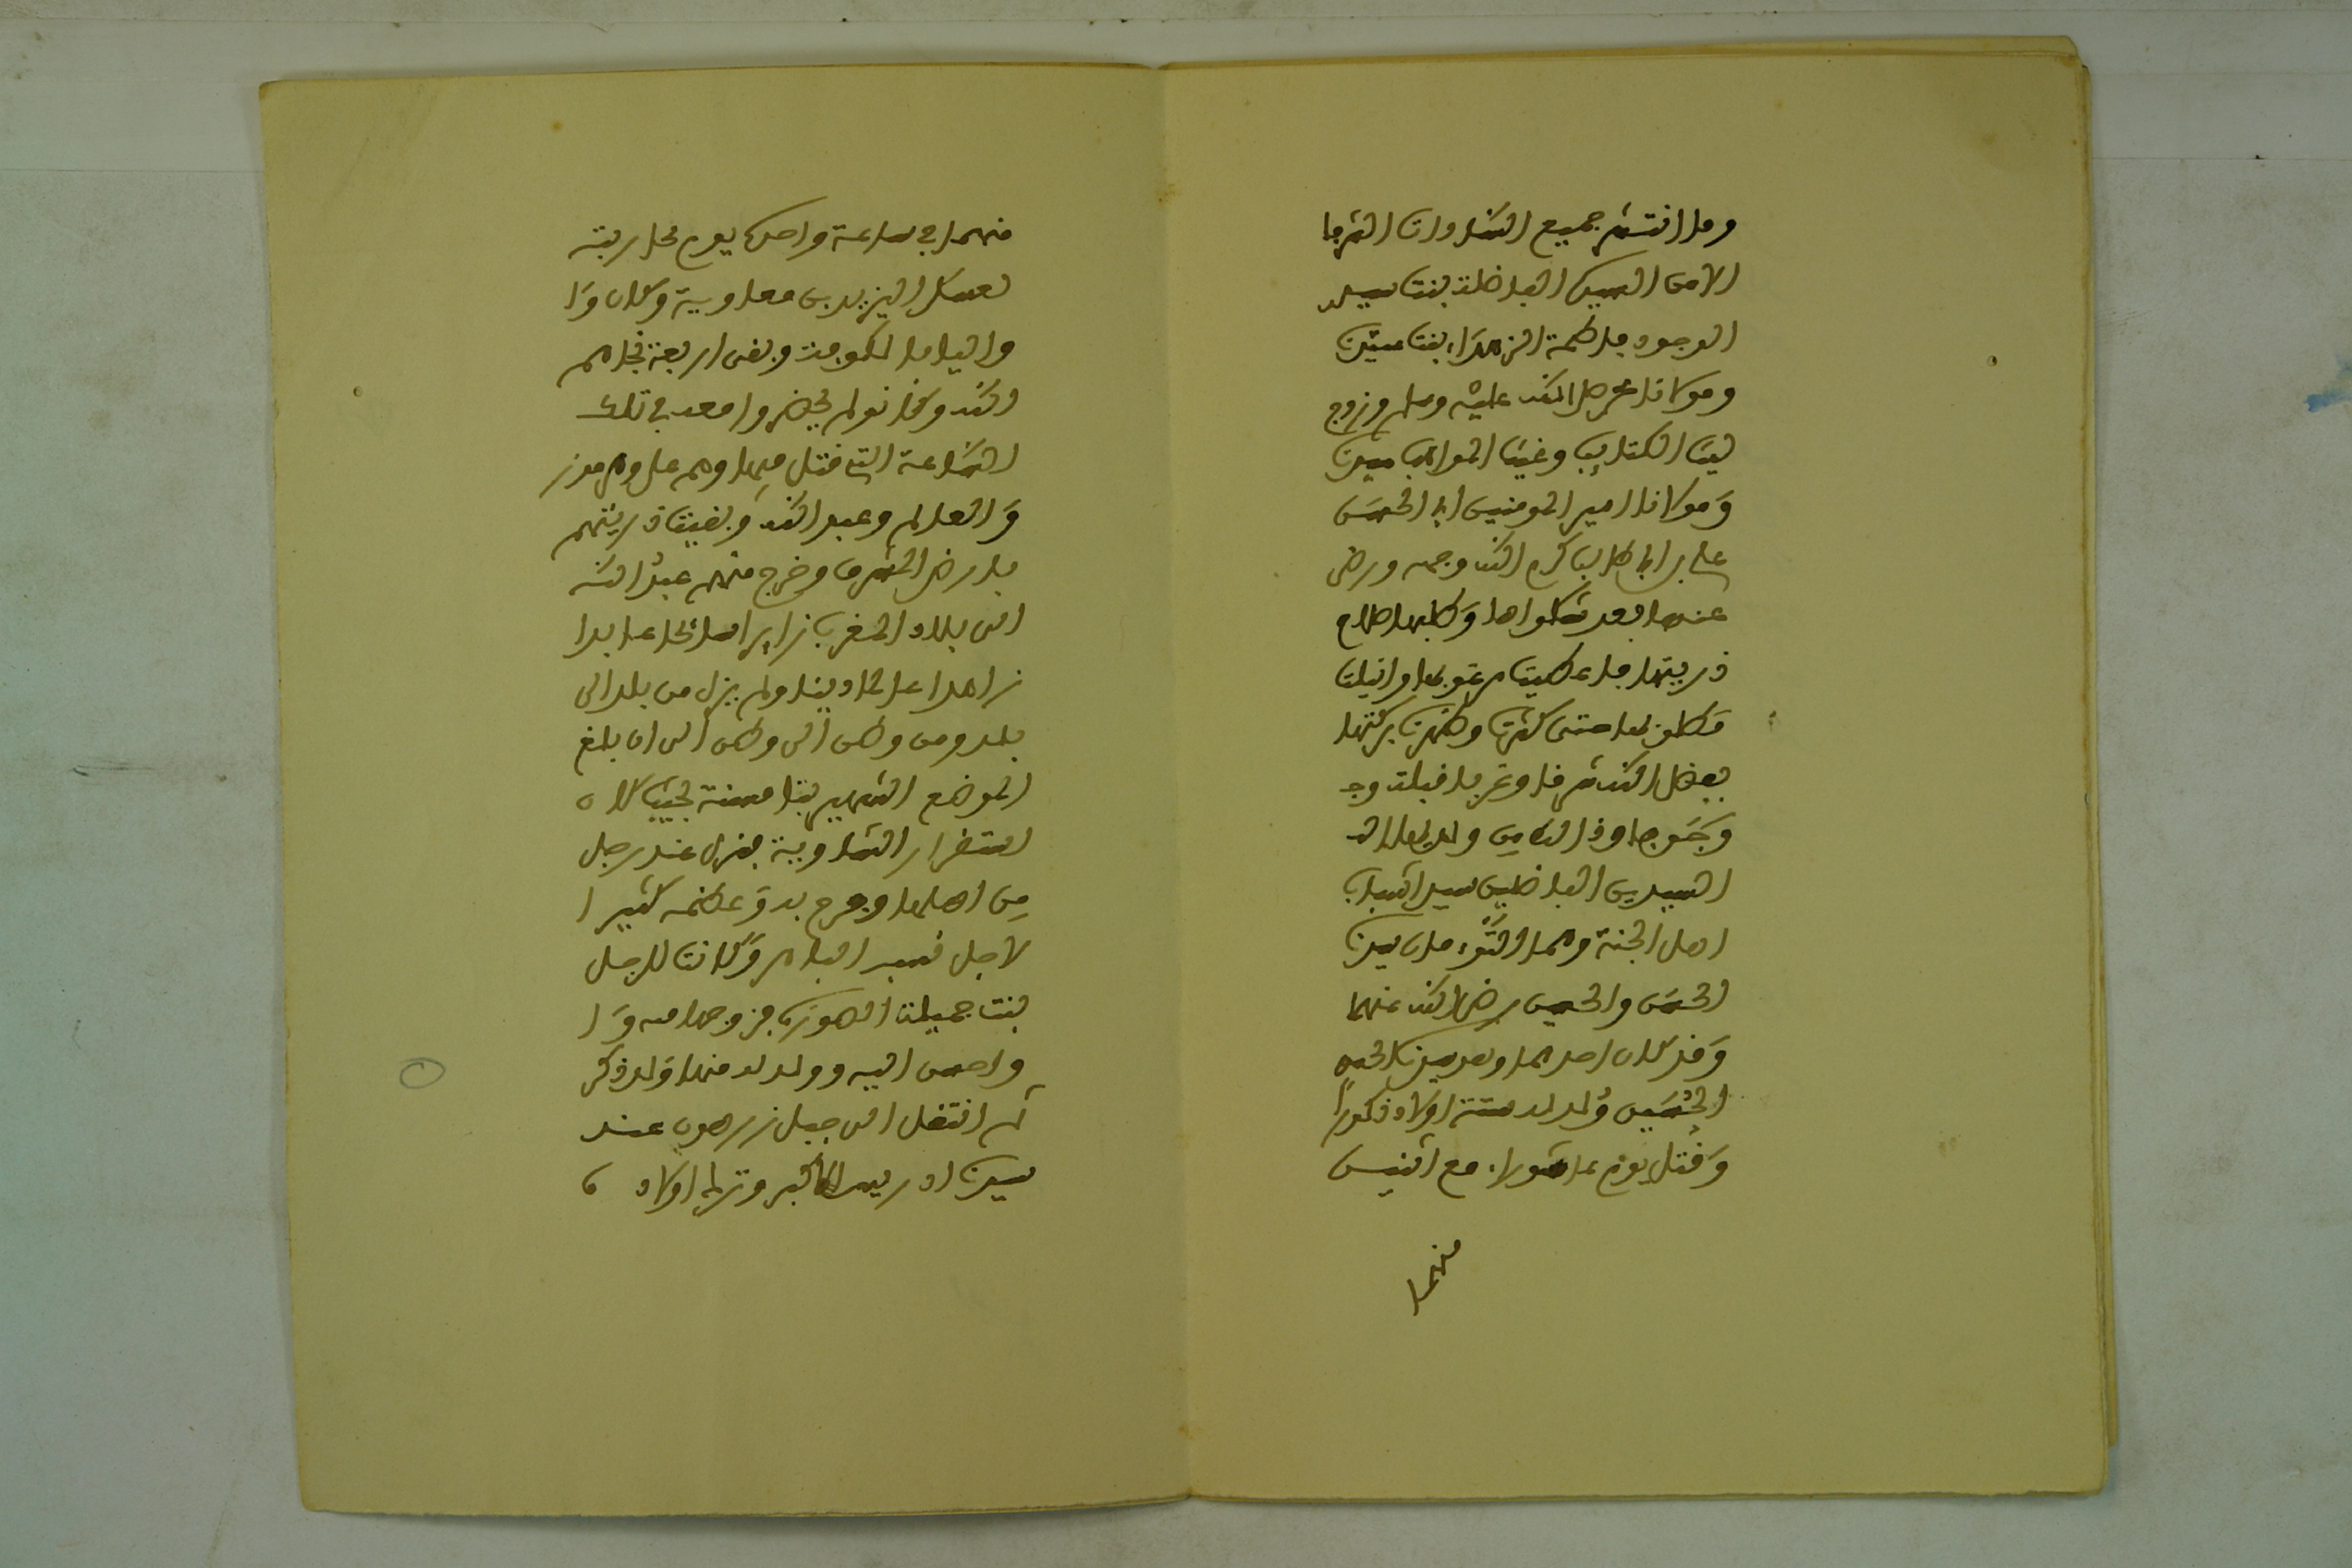 وما انتشر جميع السادات الشرفا
الا من السيدة الفاضلة بنت سيد
الوجود فاطمة الزهراء بنت سيدنا
ومولانا محمد صلى الله عليه وسلم وزوج
ليث الكتائب وغيث المواهب سيدنا
ومولانا امير المومنين ابا الحسن
علي بن ابي طالب كرم الله وجهه ورضي
عنهما بعد شكواها وطلبها صلاح
ذريتها فاعطيت مرغوبها وانيلت
مطلوبها حتى كثرت وظهرت بركتها
بفضل الله شرقا وغربا قبلة وج
وجوفا وذا الناس ولديها
السيدين الفاضلين سيدا شباب
اهل الجنة وهما سيدنا
الحسن والحسين رضي الله عنهما
وقد كان احدهما وهو سيدنا
الحسين ولد له ستة اولاد ذكورا
وقتل يوم عاشوراء مع اثنين
منهما
منهما في ساعة واحدة يوم محاربته
لعسكر اليزيد بن معاوية وكان وا
واليا ما لكوفة وبقى اربعة نجاهم
الله وكانوا لم يحضروا معه في تلك
الساعة التي قتل فيها وهم علي
والعالم وعبد الله وبقيت ذريتهم
بارض الشرفا وخرج منهم عبد الله
الى بلاد المغرب زايرا صالحا عابدا
زاهدا عالما دينا ولم يزل من بلد الى
بلد ومن وطن الى وطن الى ان بلغ
الموضع الشهير بتامسنة بحيث كان
استقرار الشاوية فنزل عند رجل
من اهلها وفرح به وعظمه كثيرا
لاجل نسبه الطاهر وكانت للرجل
بنت جميلة الصورة فزوجها منه وا
واحسن اليه وولد له منها ولد ذكر
ثم انتقل الى جبل زرهون عند
سيدنا ادريس الاكبر وترك اولاد